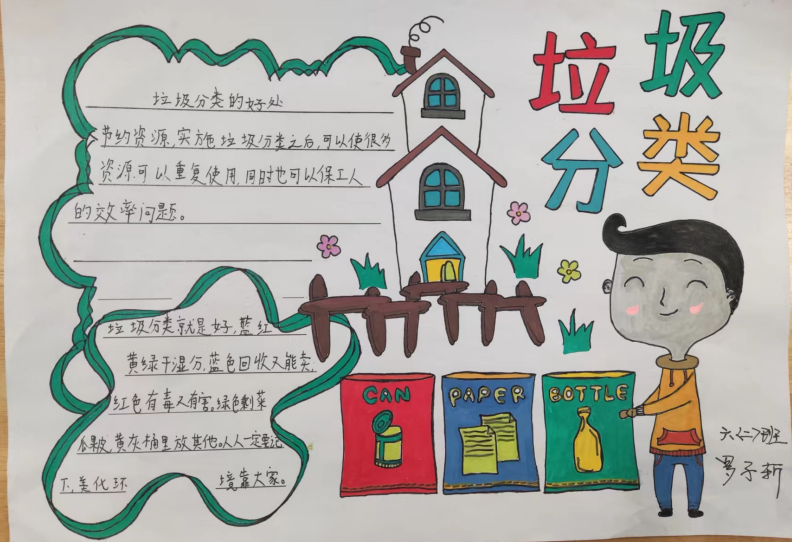 垃圾
分类
垃圾分类的好处
节约资源,实施垃圾分类之后,可以使很多
资源可以重复使用,同时也可以保工人
的效率问题。
垃圾分类就是好,蓝红
黄绿干湿分,蓝色回收又能卖,
红色有毒又有害。绿色剩菜
瓜果皮,黄灰桶里放其他。人人一定要记
下,美化环 境靠大家。
CAN
PAPER
BOTTLE
六〈二〉班
罗子新